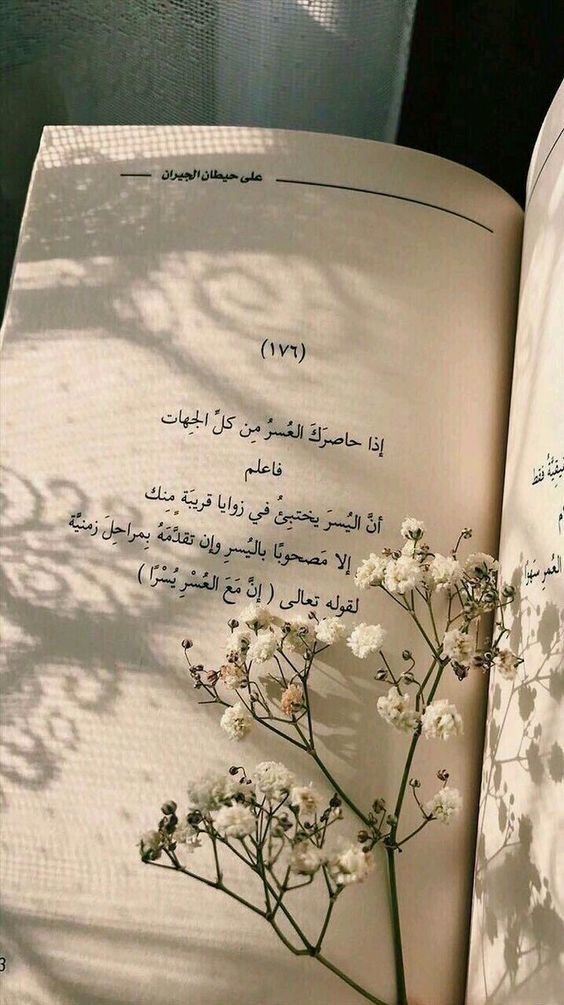 على حيطان الجيران
(١٧٦)
إذا حاصرَكَ العُسرُ مِن كلِّ الجِهات
فاعلم
أنَّ اليُسرَ يختبئُ في زوايا قريبَة مِنك
إلا مَصحوبًا باليُسرِ وإن تقدَّمَهُ بِمراحلَ زمنيَّة
لقوله تعالى ( إنَّ مَعَ العُسْرِ يُسْرًا )
فقط
العُمرِ سَهوًا
3